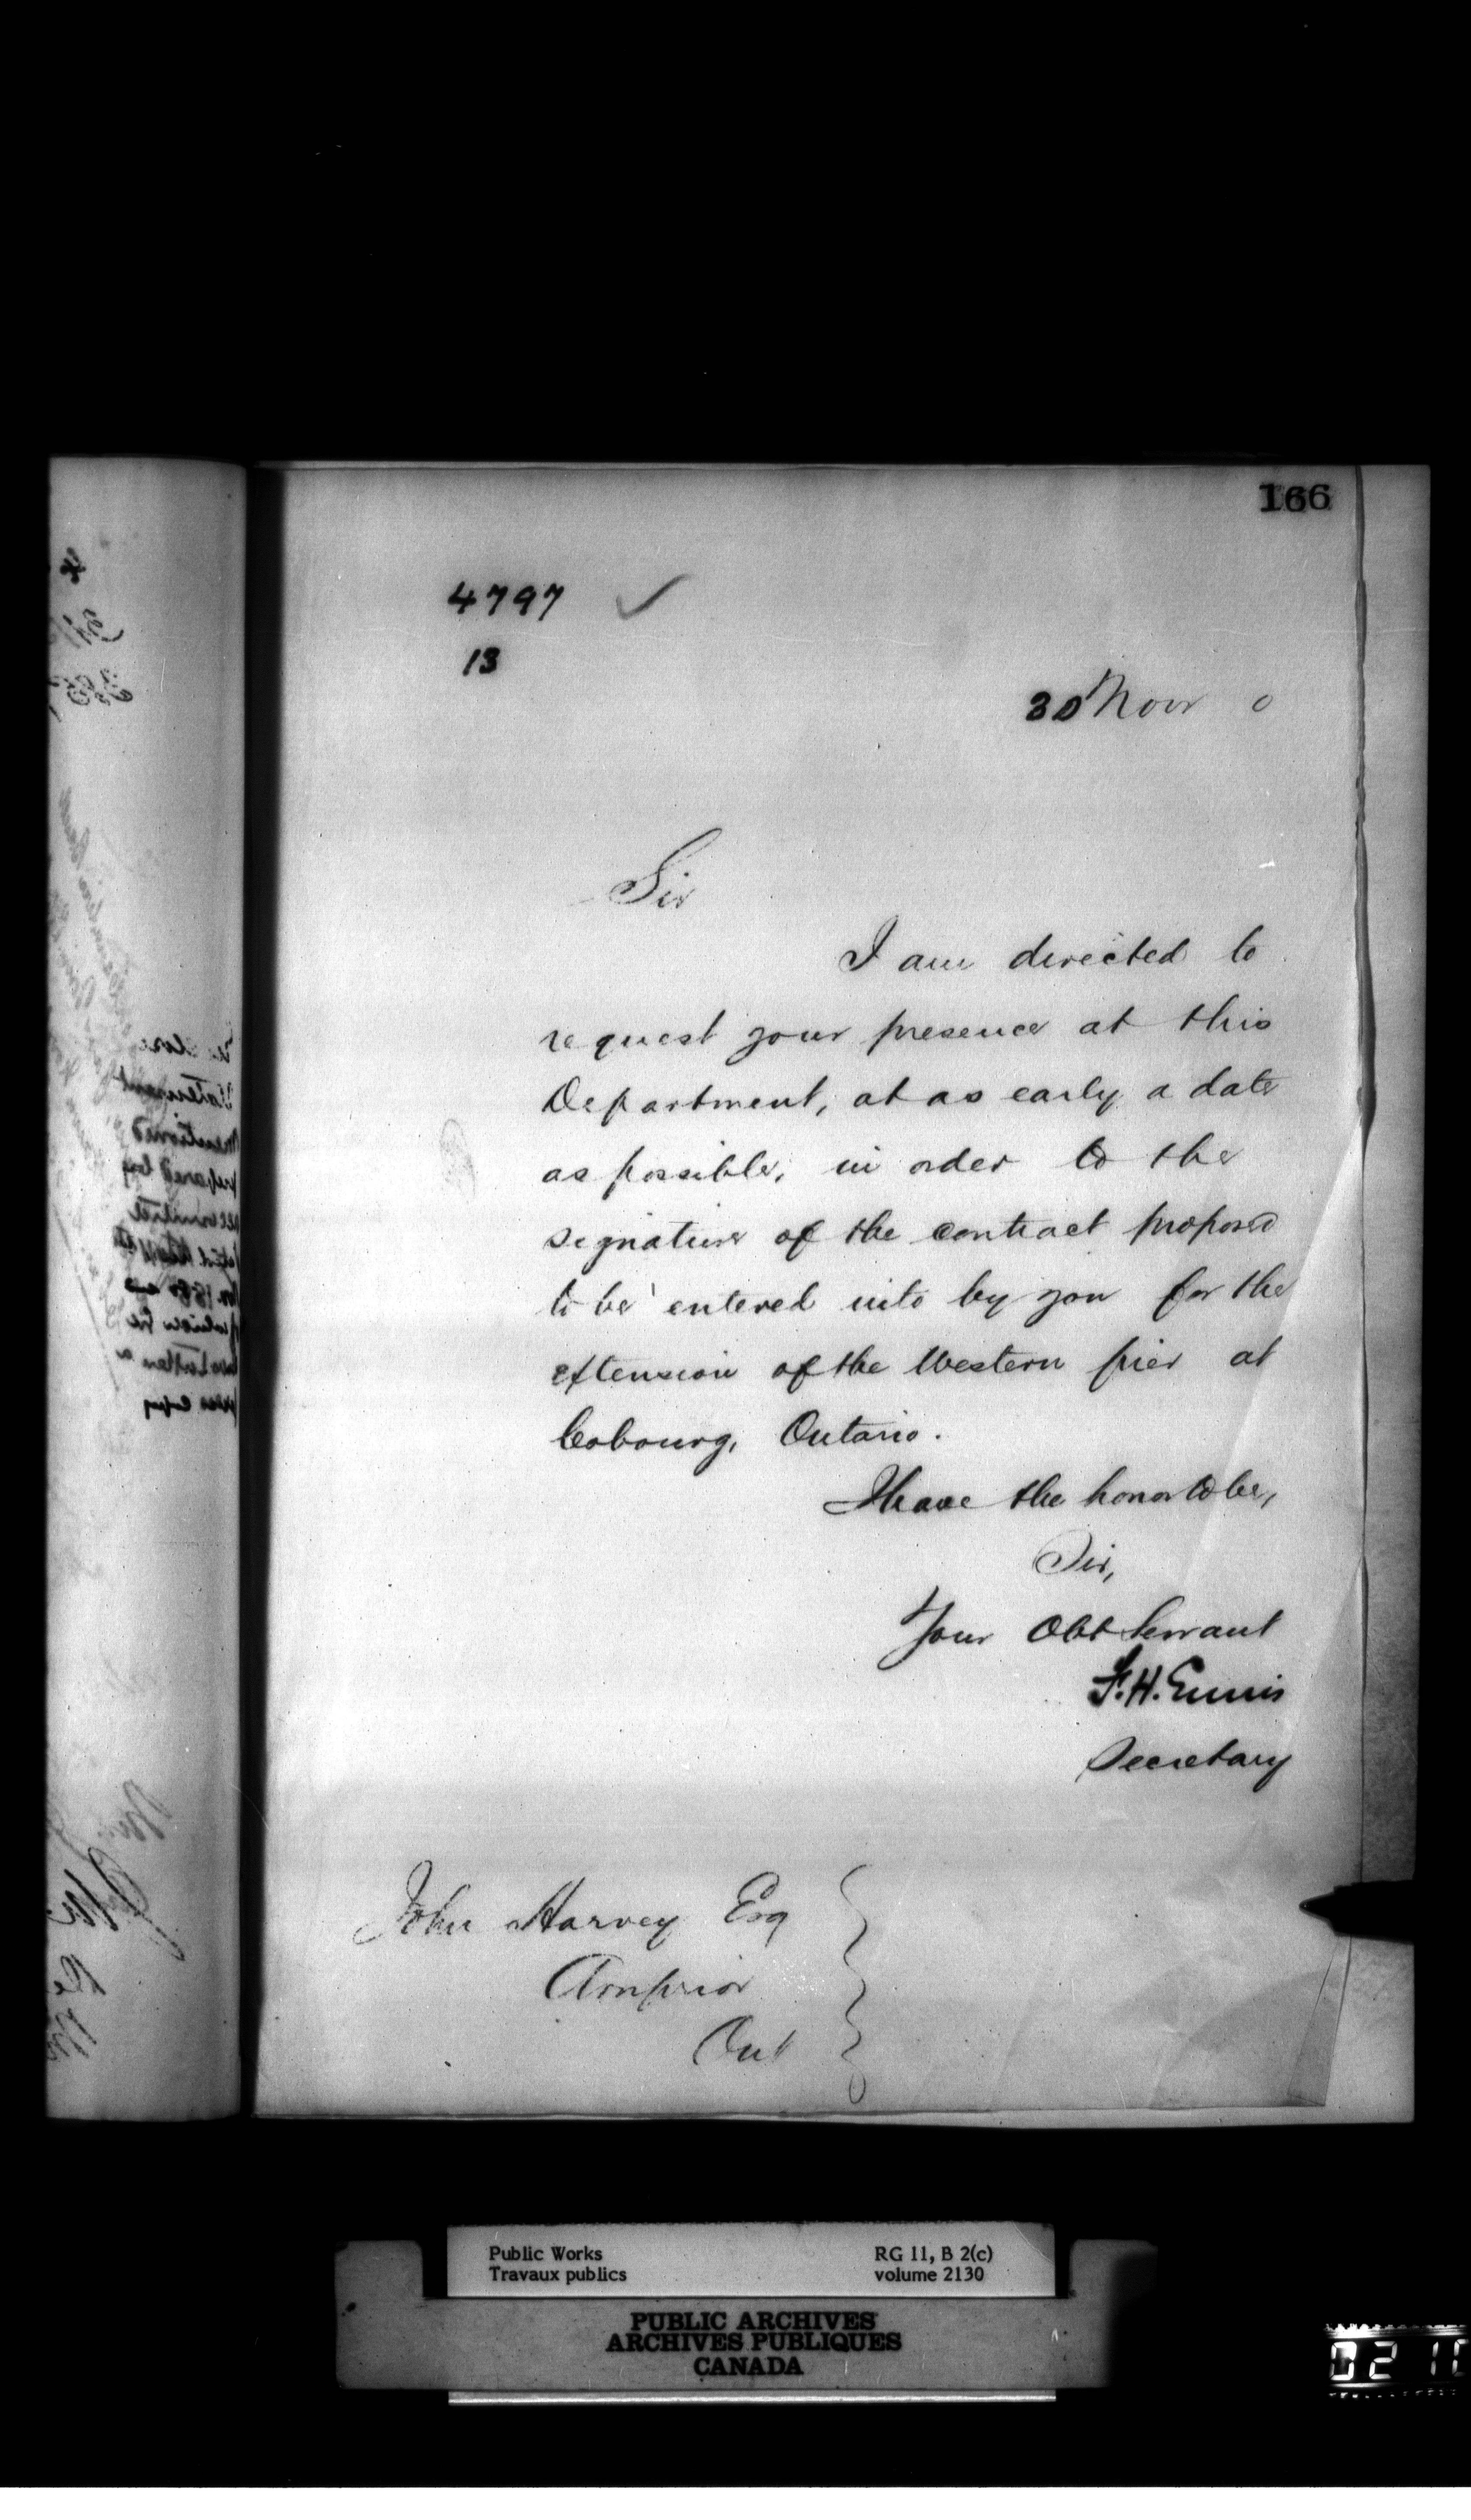 166
4797 ✓
13
30 Novr 0
Sir
I am directed to
request your presence at this
Department, at as early a date
as possible, in order to the
signature of the contract proposed
to be entered into by you for the
extension of the Western pier at
Cobourg, Ontario.
I have the honor to be,
Sir,
Your Obt Servant
F. H. Ennis
Secretary
John Harvey Esq
Arnprior
Ont
Public Works
Travaux publics
RG 11, B 2(c)
volume 2130
PUBLIC ARCHIVES
ARCHIVES PUBLIQUES
CANADA